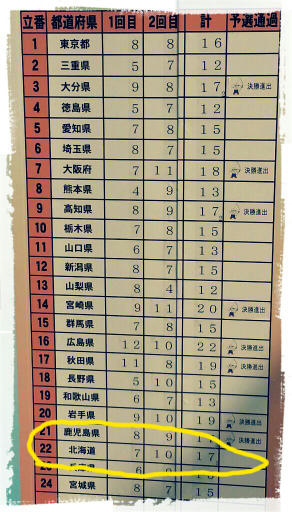 立番 都道府県 1回目 2回目 計 予選通過
1 東京都 8 8 16
2 三重県 5 7 12
3 大分県 9 8 17 決勝進出
4 徳島県 5 7 12
5 愛知県 7 8 15
6 埼玉県 8 7 15
7 大阪府 7 11 18 決勝進出
8 熊本県 4 9 13
9 高知県 8 9 17 決勝進出
10 栃木県 7 8 15
11 山口県 6 7 13
12 新潟県 8 7 15
13 山梨県 8 4 12
14 宮崎県 9 11 20 決勝進出
15 群馬県 7 8 15
16 広島県 12 10 22 決勝進出
17 秋田県 11 8 19 決勝進出
18 長野県 5 10 15
19 和歌山県 6 7 13
20 岩手県 9 10 19 決勝進出
21 鹿児島県 8 9 決勝進出
22 北海道 7 10 17
6
24 宮城県 8 7 15